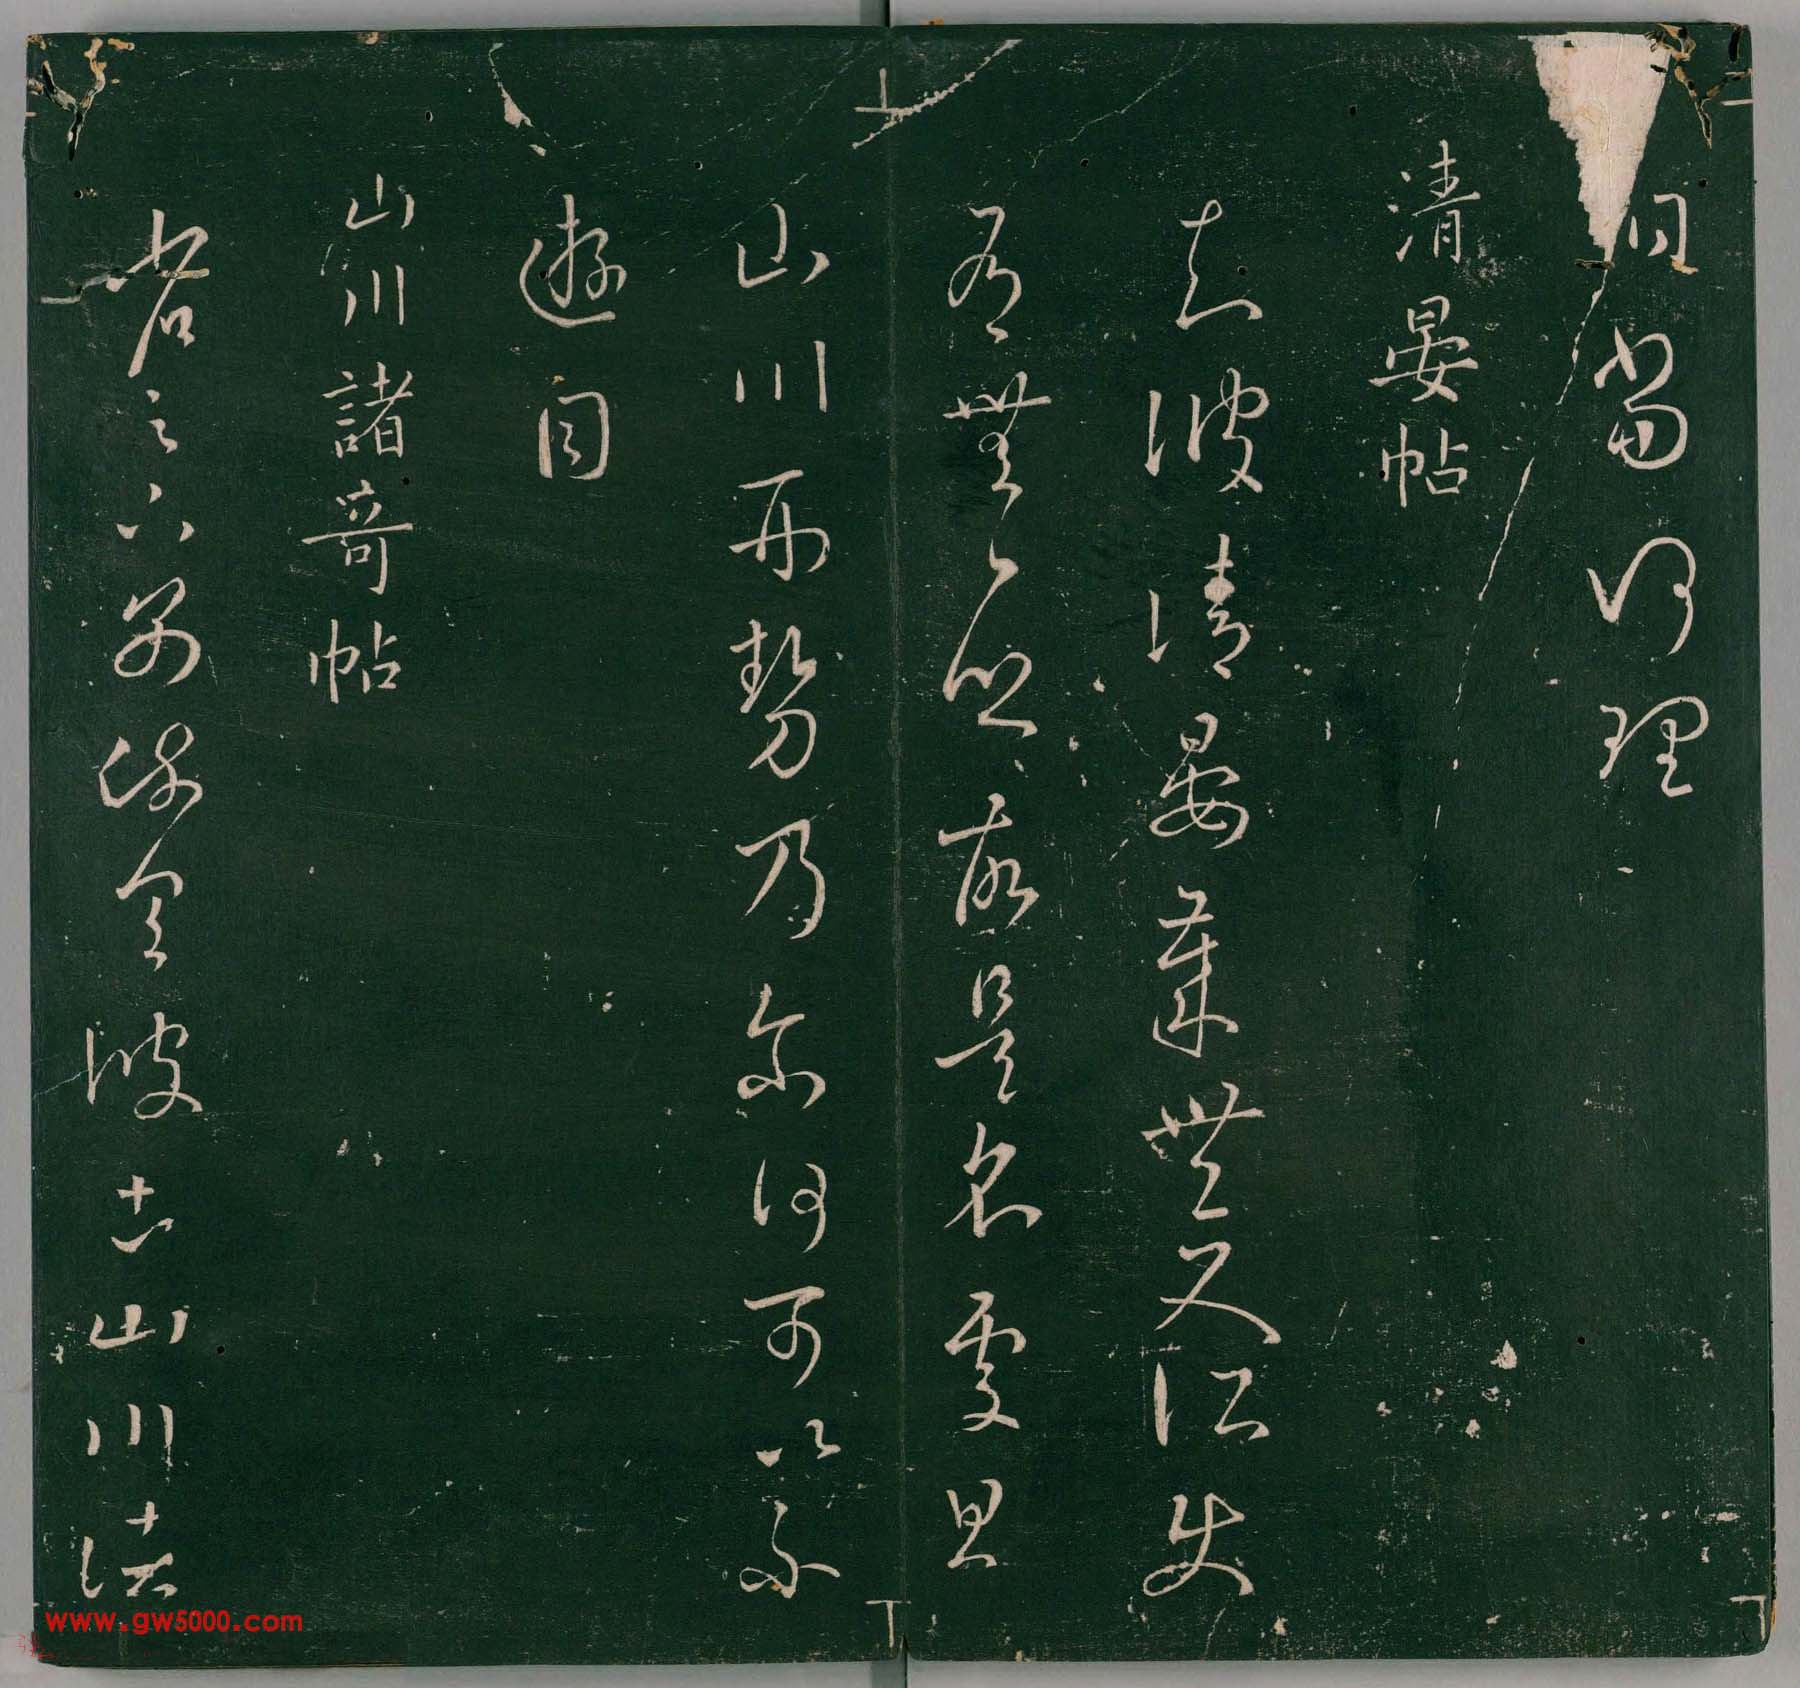 當何理
清晏帖
知彼清晏歲豐又所使
有無一鄉故是名處且
山川形勢乃爾何可以不
遊目
山川諸奇帖
省足下別疏具彼土山川諸
www.gw5000.com